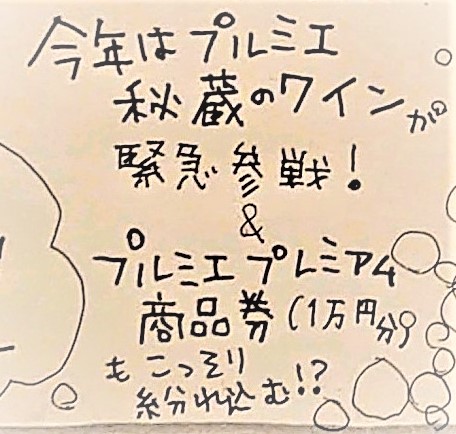 今年はプルミエ
秘蔵のワインが
緊急参戦!
&
プルミエプレミアム
商品券(1万円分)
もこっそり
紛れ込む!?